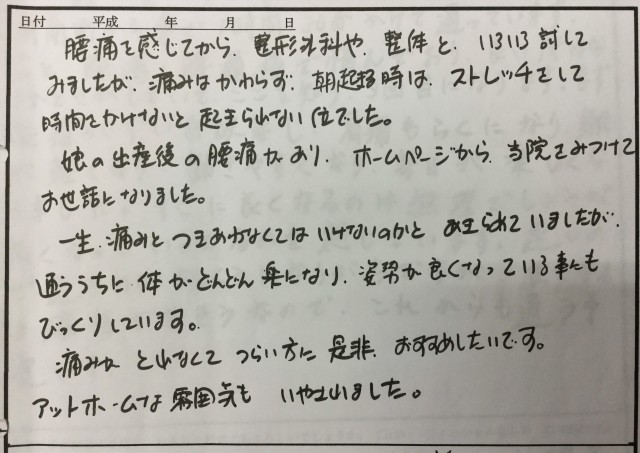 日付 平成 年 月 日
腰痛を感じてから、整形外科や、整体と、いろいろ試して
みましたが、痛みはかわらず、朝起る時は、ストレッチをして
時間をかけないと起きられない位でした。
娘の出産後の腰痛があり、ホームページから、当院をみつけて
お世話になりました。
一生、痛みとつきあわなくてはいけないのかと あきらめていましたが、
通ううちに 体がどんどん楽になり、姿勢が良くなっている事にも
びっくりしています。
痛みが とれなくて つらい方に 是非、おすすめしたいです。
アットホームな雰囲気も いやされました。